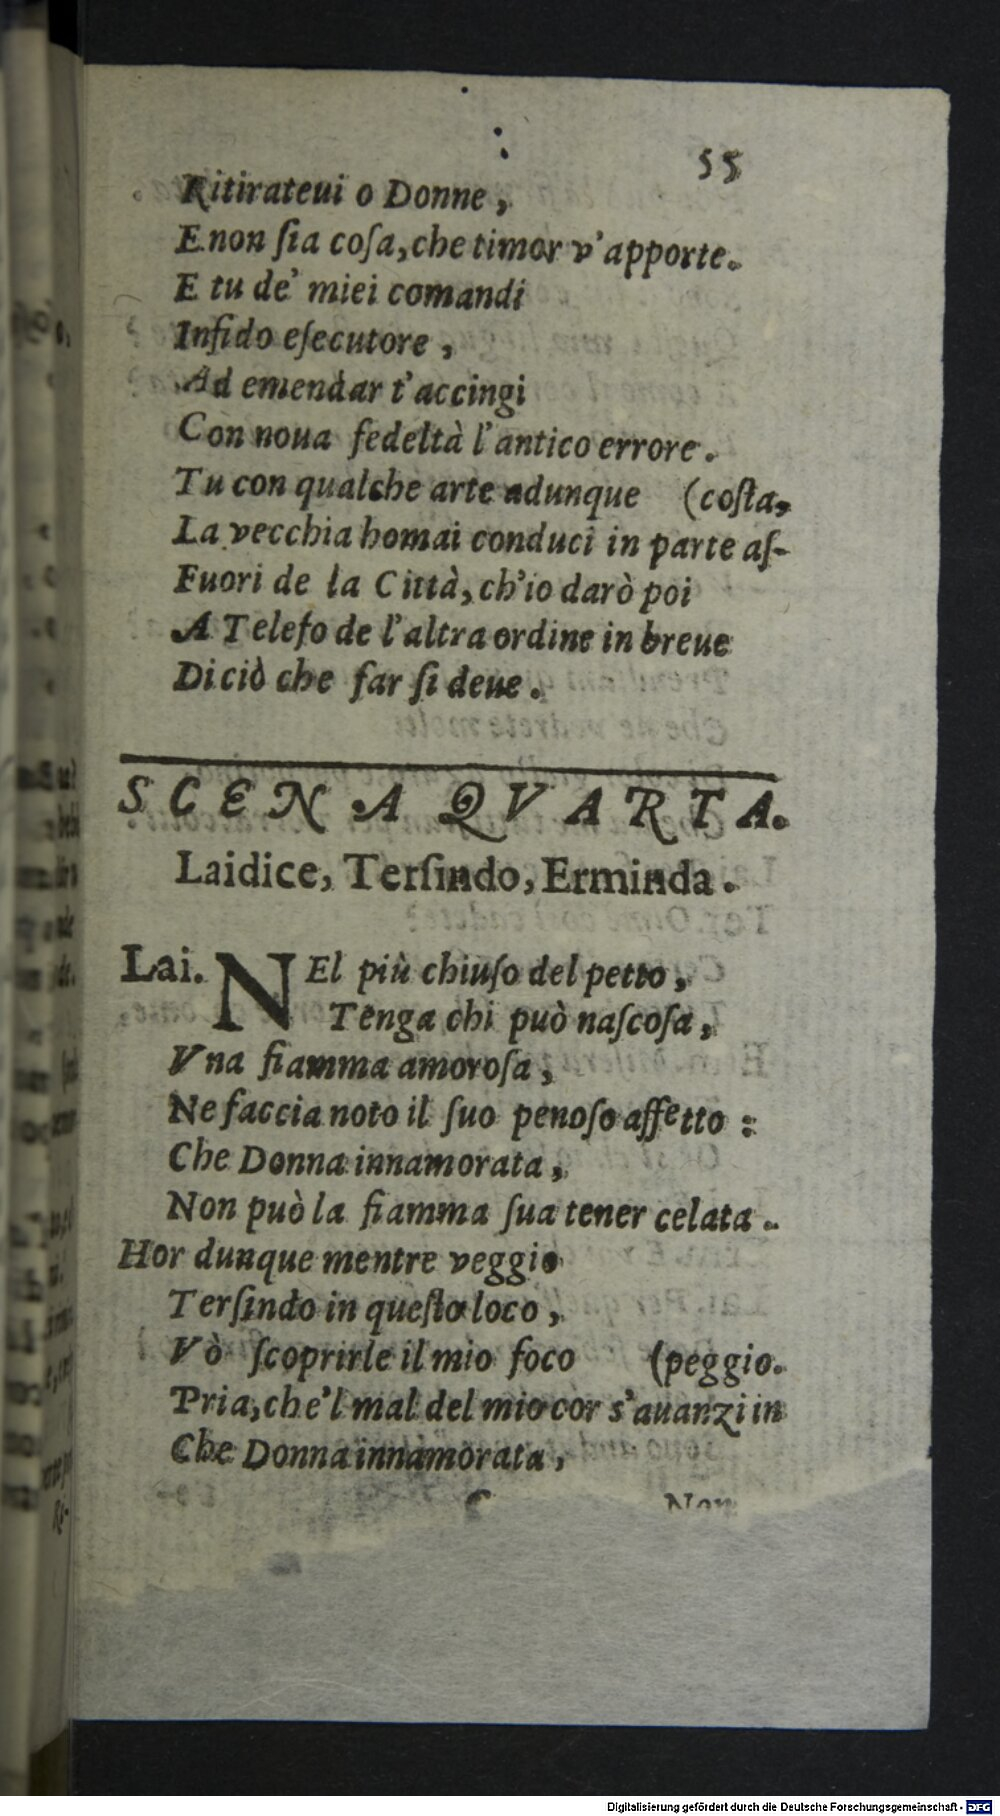 55
Ritirateui o Donne,
E non ſia coſa, che timor v'apporte.
E tu de' miei comandi
Infido eſecutore,
Ad emendar t'accingi
Con noua fedeltà l'antico errore.
Tu con qualche arte adunque (coſta,
La vecchia homai conduci in parte aſ-
Fuori de la Città, ch'io darò poi
A Telefo de l'altra ordine in breue
Di ciò che far ſi deue.
SCENA QVARTA.
Laidice, Terſindo, Erminda.
Lai. NEl più chiuſo del petto,
Tenga chi può naſcoſa,
Vna fiamma amoroſa,
Ne faccia noto il ſuo penoſo affetto:
Che Donna innamorata,
Non può la fiamma ſua tener celata.
Hor dunque mentre veggio
Terſindo in queſto loco,
Vò ſcoprirle il mio foco (peggio.
Pria, che'l mal del mio cor s'auanzi in
Che Donna innamorata,
Non
Digitalisierung gefördert durch die Deutsche Forschungsgemeinschaft - DFG